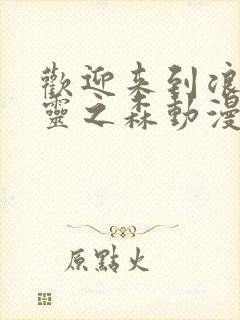 歡迎来到浪
靈之森動漫
原點火